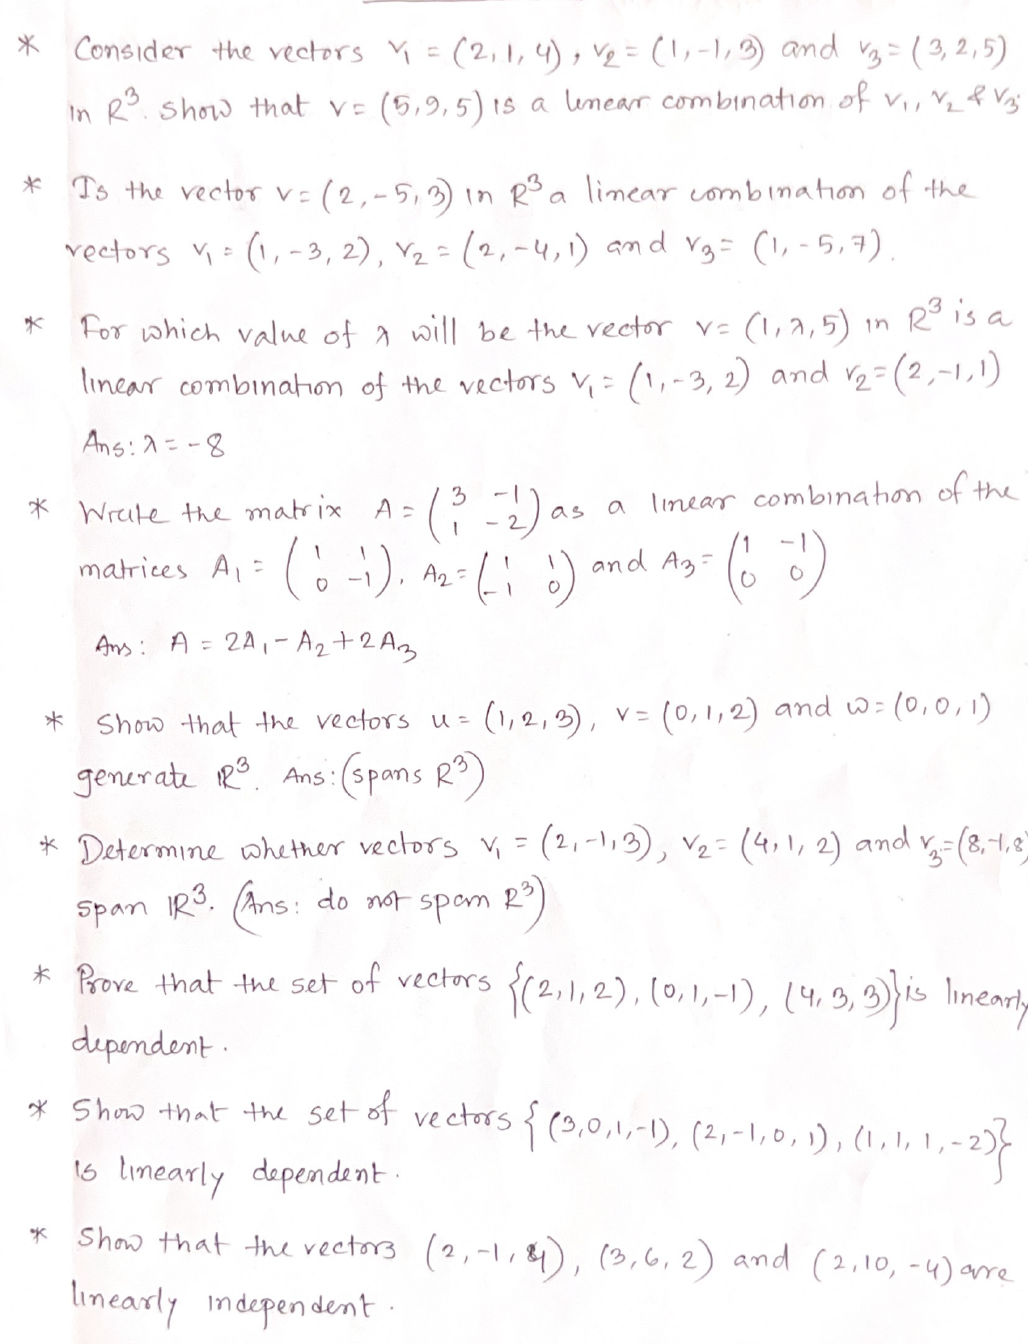 * Consider the vectors v₁ = (2, 1, 4), v₂ = (1, -1, 3) and v₃ = (3, 2, 5)
in R³. Show that v = (5, 9, 5) is a linear combination of v₁, v₂ & v₃.
* Is the vector v = (2, -5, 3) in R³ a linear combination of the
vectors v₁ = (1, -3, 2), v₂ = (2, -4, 1) and v₃ = (1, -5, 7).
* For which value of λ will be the vector v = (1, λ, 5) in R³ is a
linear combination of the vectors v₁ = (1, -3, 2) and v₂ = (2, -1, 1)
Ans: λ = -8
* Write the matrix A = (3 -1; 1 -2) as a linear combination of the
matrices A₁ = (1 1; 0 -1), A₂ = (1 1; -1 0) and A₃ = (1 -1; 0 0)
Ans: A = 2A₁ - A₂ + 2A₃
* Show that the vectors u = (1, 2, 3), v = (0, 1, 2) and w = (0, 0, 1)
generate ℝ³. Ans: (spans R³)
* Determine whether vectors v₁ = (2, -1, 3), v₂ = (4, 1, 2) and v₃ = (8, -1, 8)
span ℝ³. (Ans: do not span R³)
* Prove that the set of vectors {(2, 1, 2), (0, 1, -1), (4, 3, 3)} is linearly
dependent.
* Show that the set of vectors {(3, 0, 1, -1), (2, -1, 0, 1), (1, 1, 1, -2)}
is linearly dependent.
* Show that the vectors (2, -1, 4), (3, 6, 2) and (2, 10, -4) are
linearly independent.